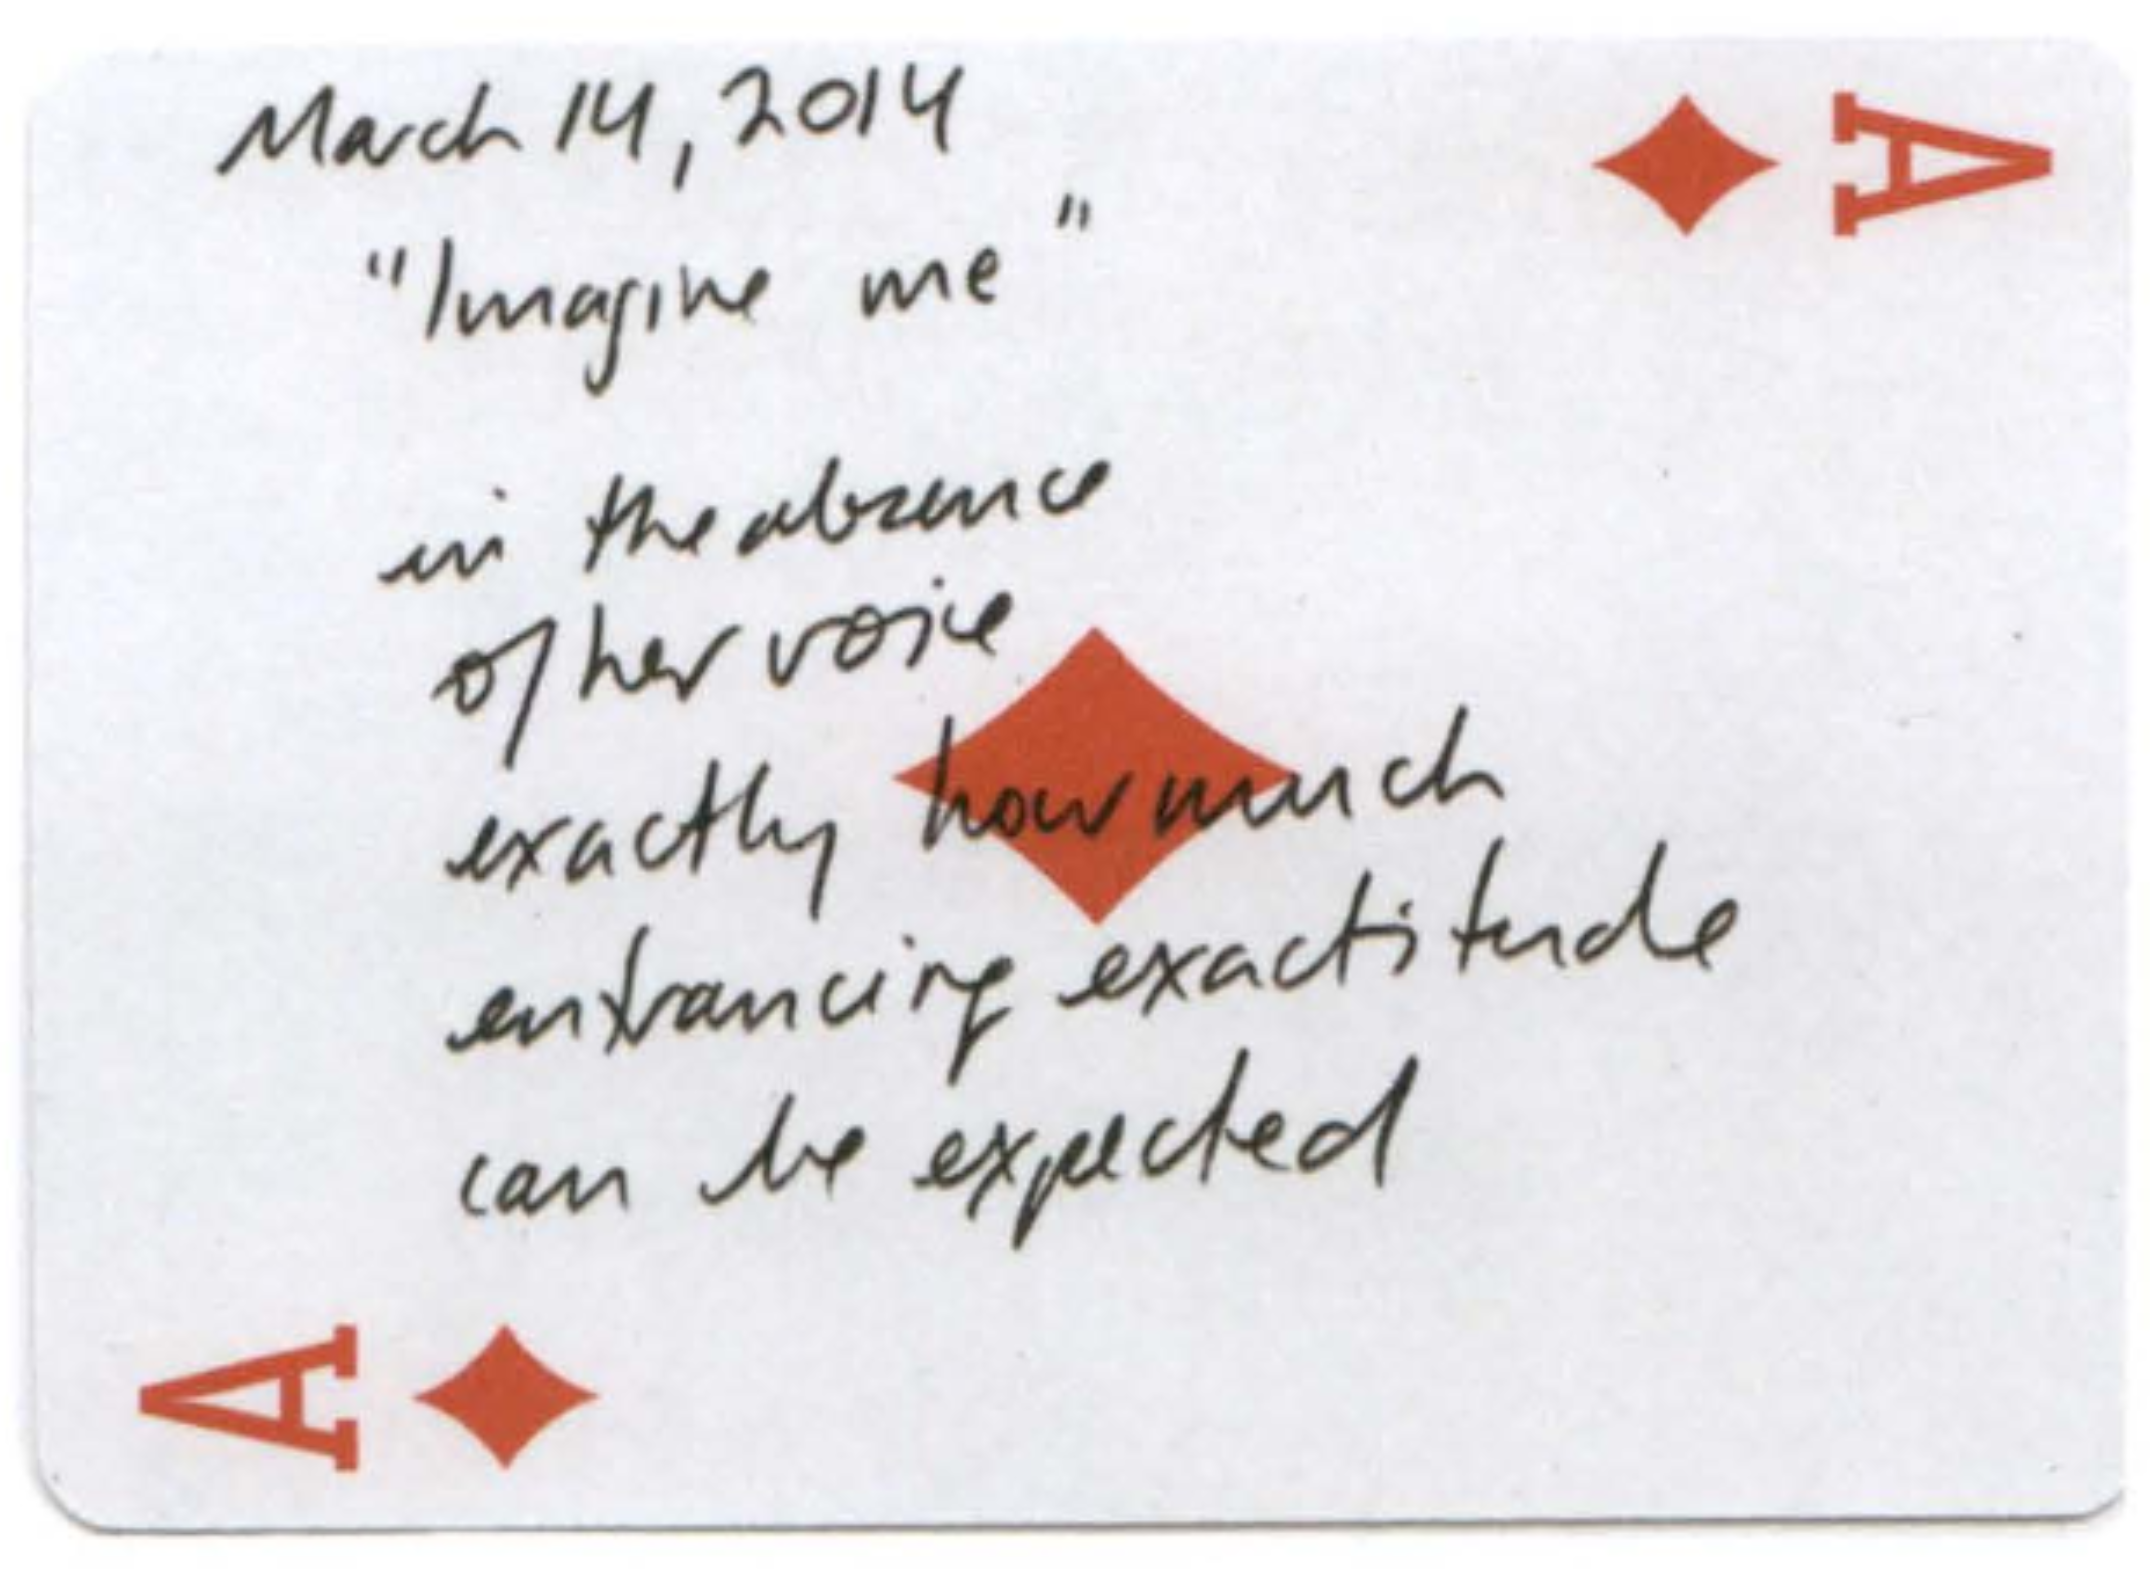 March 14, 2014
A
"Imagine me"
in the absence
of her voice
exactly how much
entrancing exactitude
can be expected
A